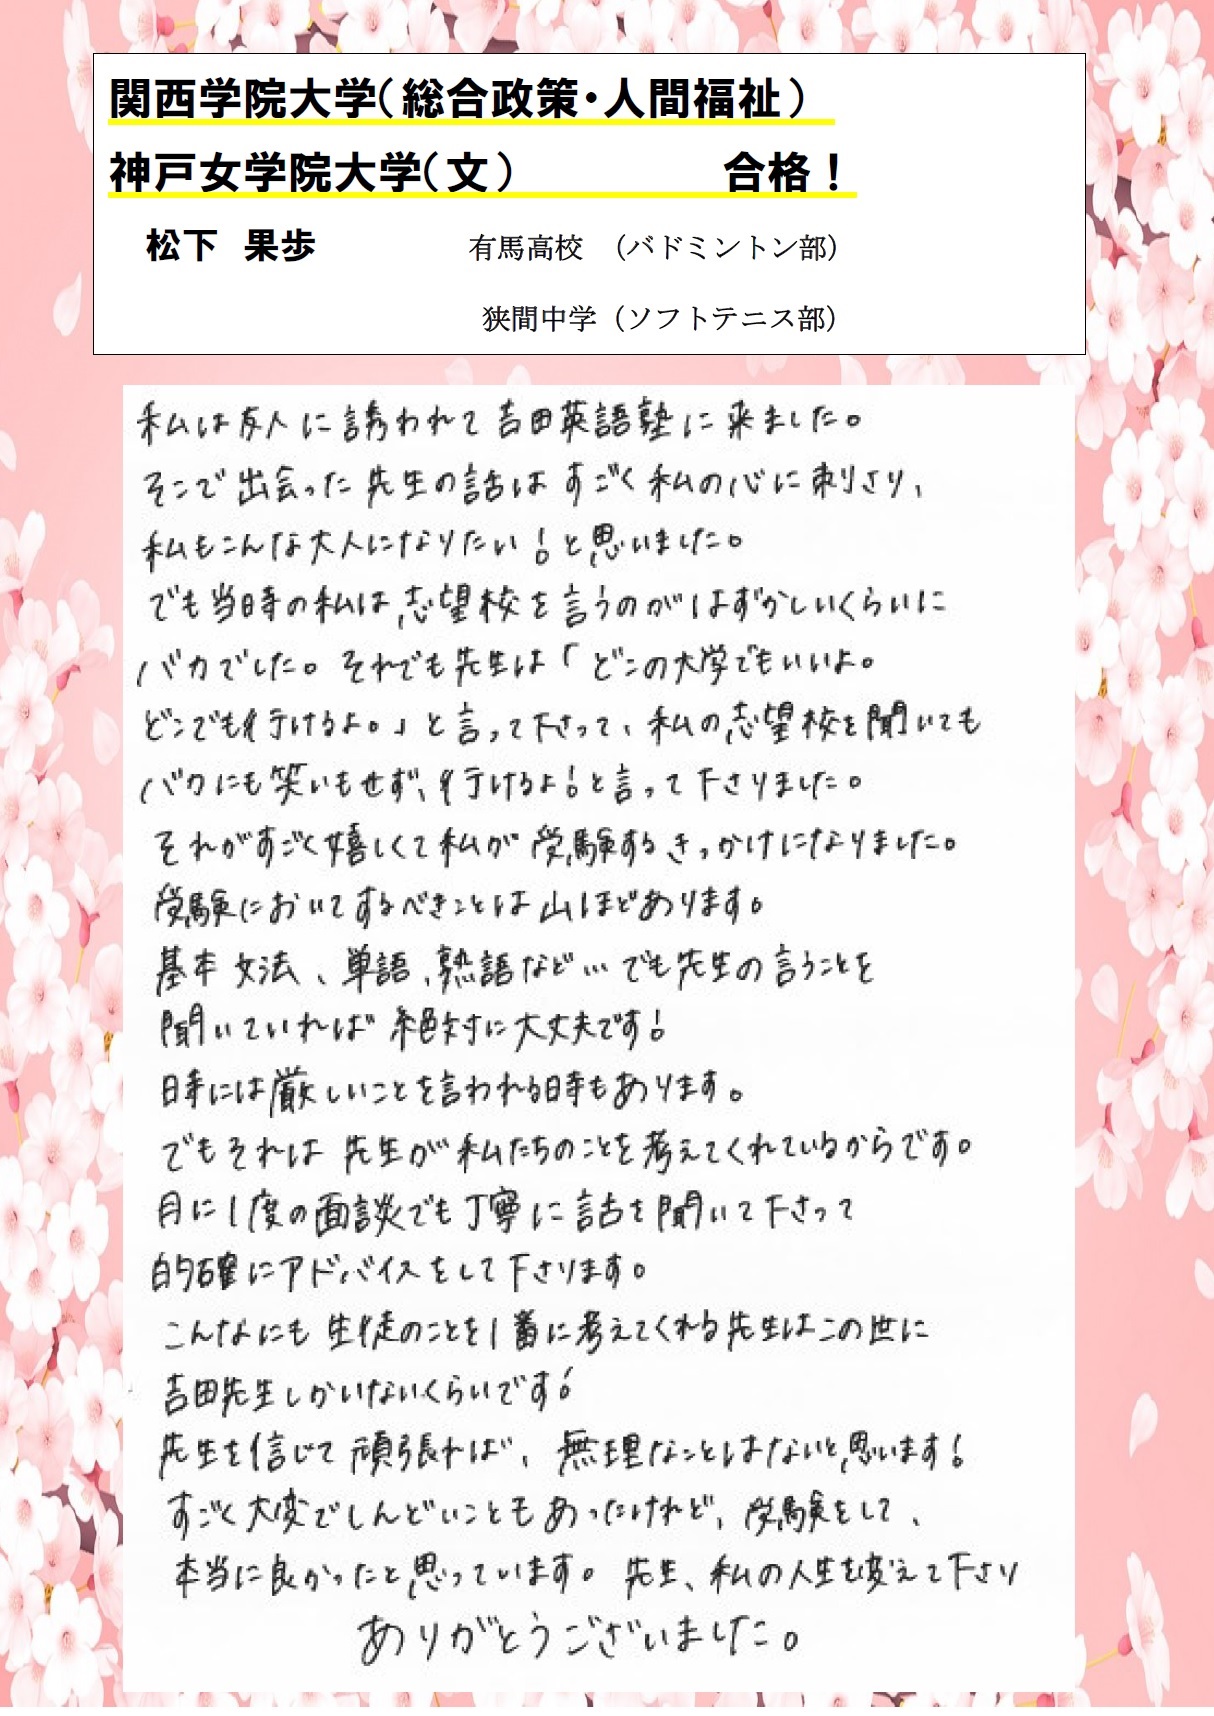 関西学院大学(総合政策・人間福祉)
神戸女学院大学(文) 合格!
松下 果歩 有馬高校 (バドミントン部)
狭間中学(ソフトテニス部)
私は友人に誘われて吉田英語塾に来ました。
そこで出会った先生の話はすごく私の心に刺さり、
私もこんな大人になりたい!と思いました。
でも当時の私は、志望校を言うのがはずかしいくらいに
バカでした。それでも先生は「どこの大学でもいいよ。
どこでも行けるよ。」と言って下さって、私の志望校を聞いても
バカにも笑いもせず、行けるよ!と言って下さりました。
それがすごく嬉しくて私が受験するきっかけになりました。
受験においてするべきことは山ほどあります。
基本文法、単語、熟語など…でも先生の言うことを
聞いていれば絶対に大丈夫です!
時には厳しいことを言われる時もあります。
でもそれは先生が私たちのことを考えてくれているからです。
月に1度の面談でも丁寧に話を聞いて下さって
的確にアドバイスをして下さります。
こんなにも生徒のことを1番に考えてくれる先生はこの世に
吉田先生しかいないくらいです!
先生を信じて頑張れば、無理なことはないと思います!
すごく大変でしんどいこともあったけれど、受験をして、
本当に良かったと思っています。先生、私の人生を変えて下さり
ありがとうございました。